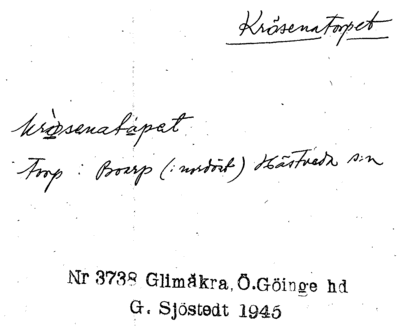 Krösenatorpet
krösenatåpat
Torp : Boarp (: nordöst) Hästveda s:n
Nr 3738 Glimåkra, Ö.Göinge hd
G. Sjöstedt 1945